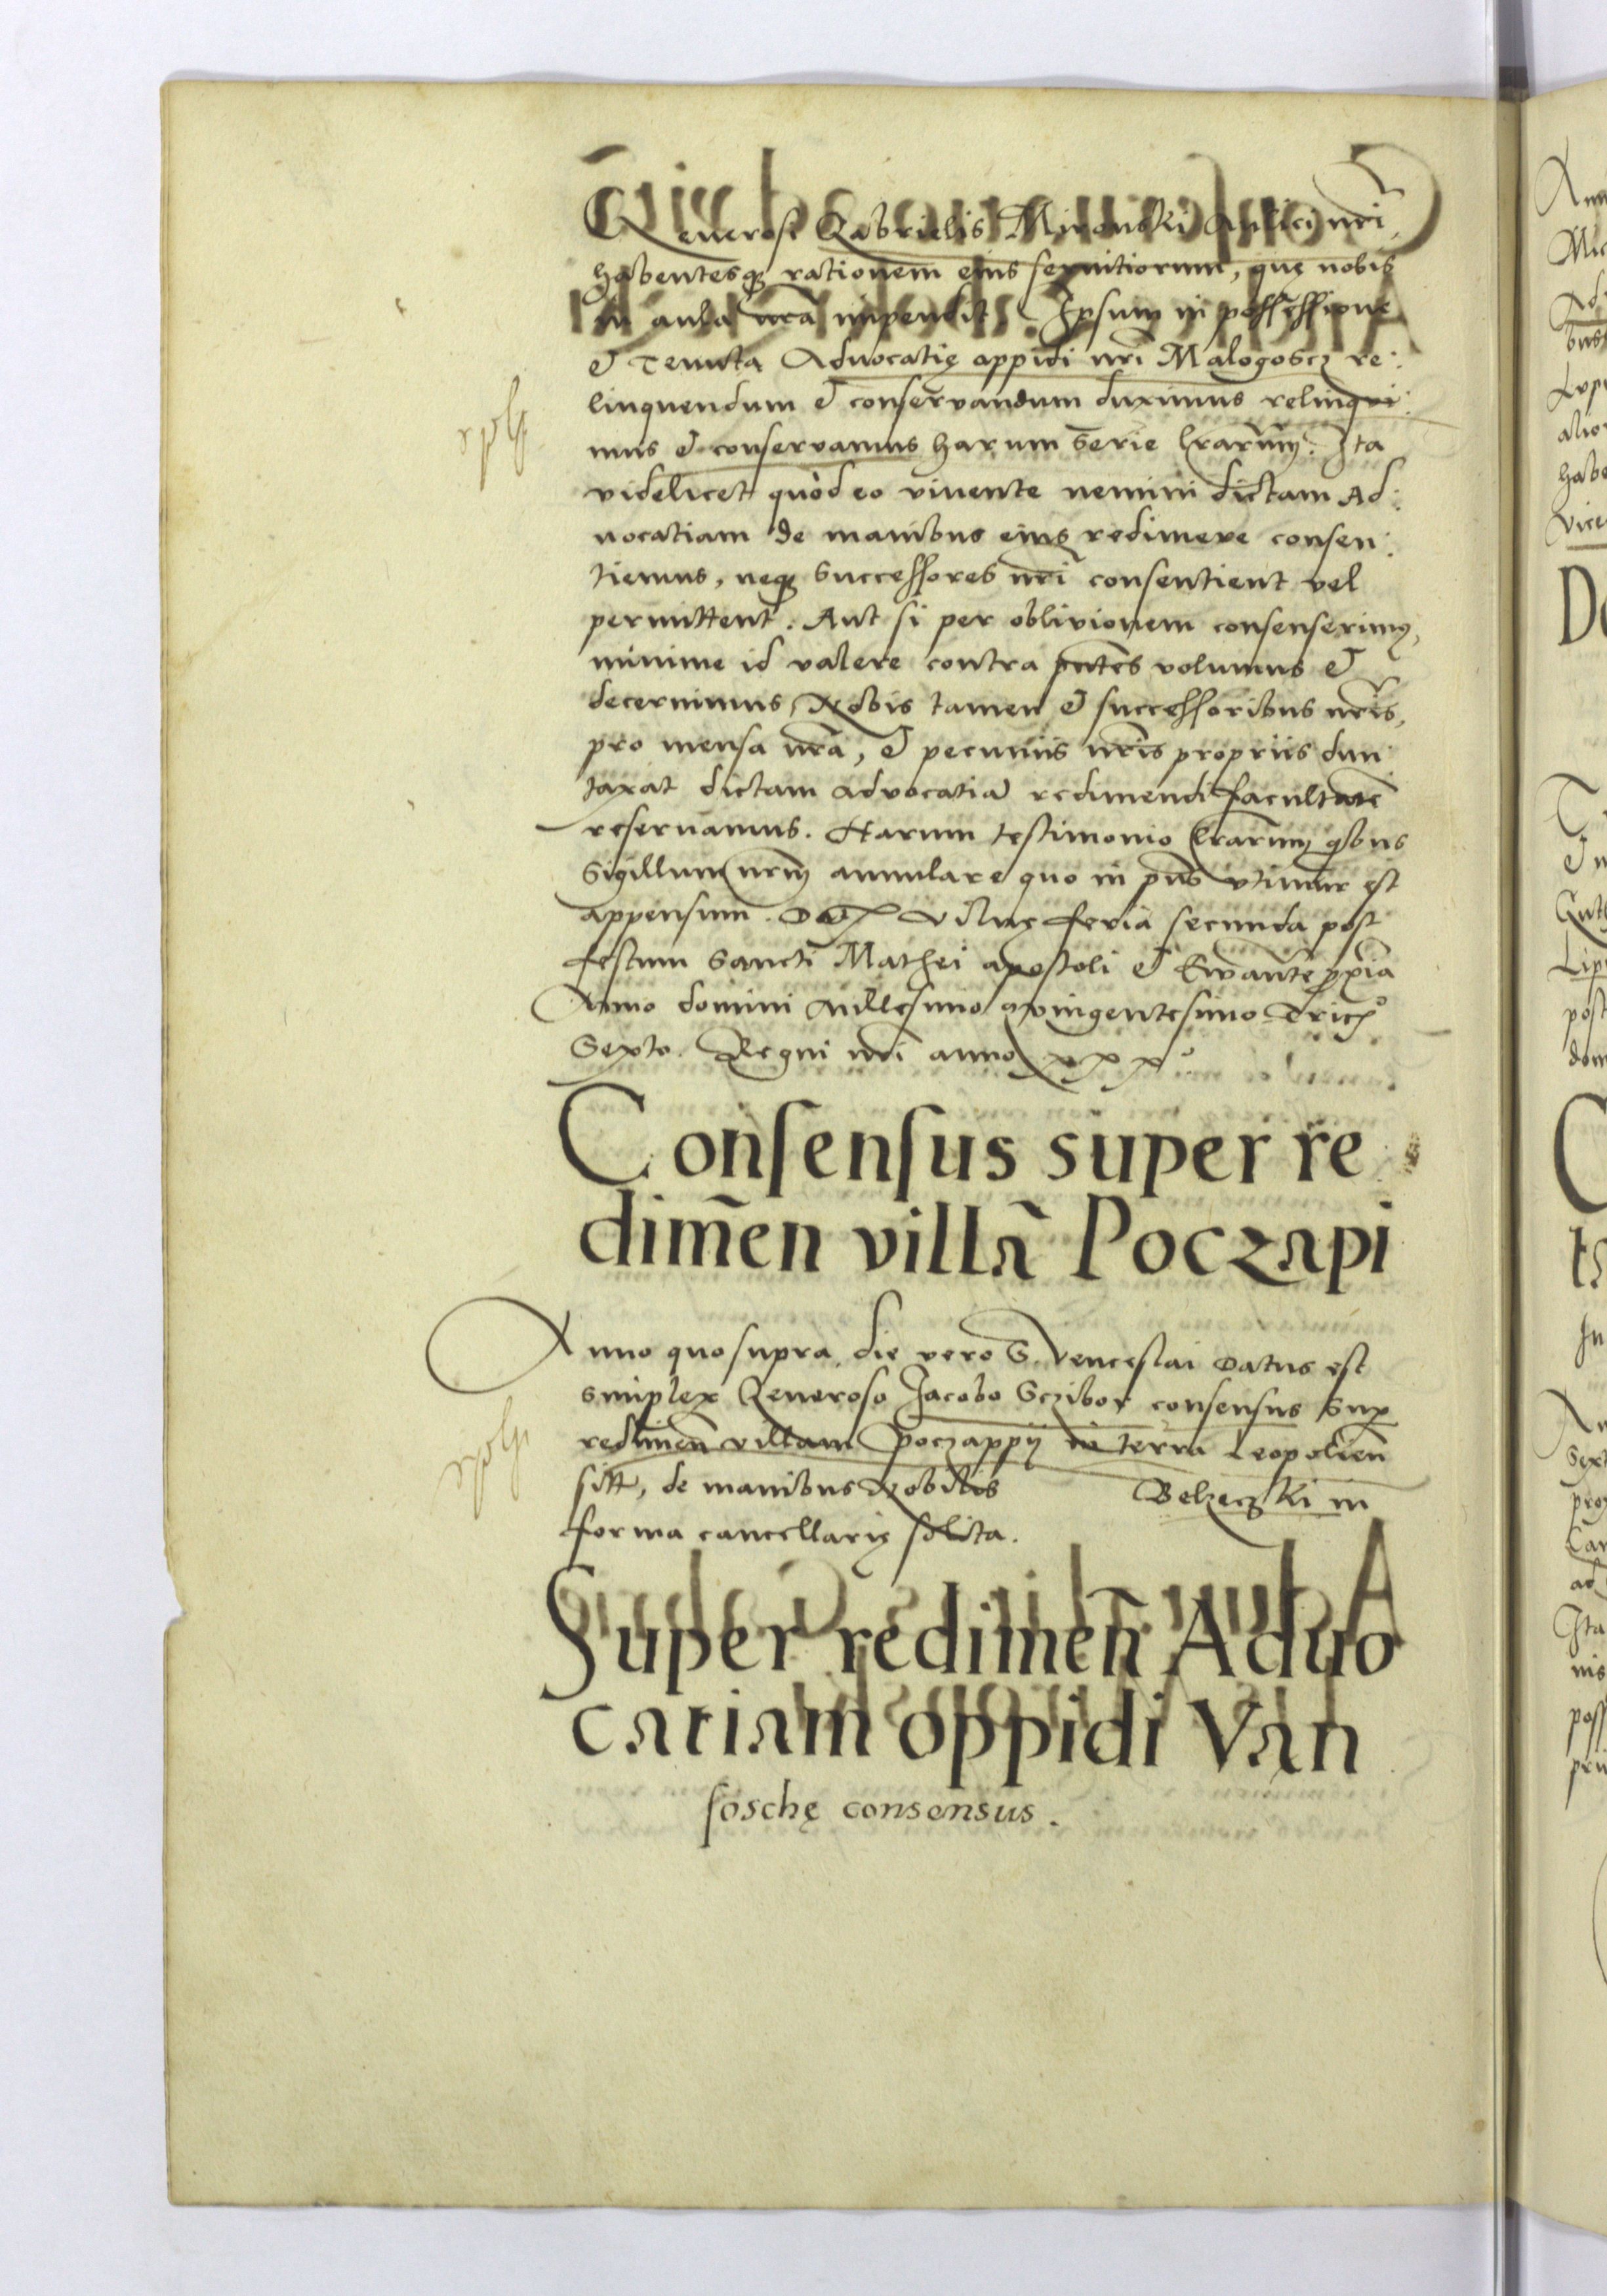 Generosi Gabrielis Mironski Aulici nri,
habentesq rationem eius seruitiorum, quę nobis
in aula nrã impendit, Ipsum in possessione
et Tenuta Aduocatię oppidi nri Malogoscz re:
linquendum et conservandum duximus relinqui:
mus et conservamus harum Serie lrarum. Ita
videlicet quòd eo viuente nemini dictam Ad:
uocatiam de manibus eius redimere consen:
tiemus, neq Successores nri consentient vel
permittent. Aut si per oblivionem consenserimus,
minime id valere contra pntes volumus et
decernimus, Nobis tamen et successoribus nris,
pro mensa nra, et pecuniis nris propriis dun
taxat dictam advocatiã redimendi facultatẽ
reseruamus. Harum testimonio lrarum qbus
Sigillum nrm annulare quo in pns vtimur est
appensum. Vilnę feria secunda post
festum Sancti Mathei apostoli et Ewante pxia
Anno domini Millesimo qvingentesimo Trices°
Sexto. Regni nri anno xxx°.
Consensus super re
dim̃en villã Poczapi
Anno quo supra die vero S. Venceslai Datus est
simplex Generoso Jacobo Sczibor consensus Sup
redimen villam Poczappy in terra Leopolien
sitt, de manibus Nobilis Belzeczki in
forma cancellarię solita.
Super redimen̄ Aduo
catiam oppidi Van
soschę consensus.